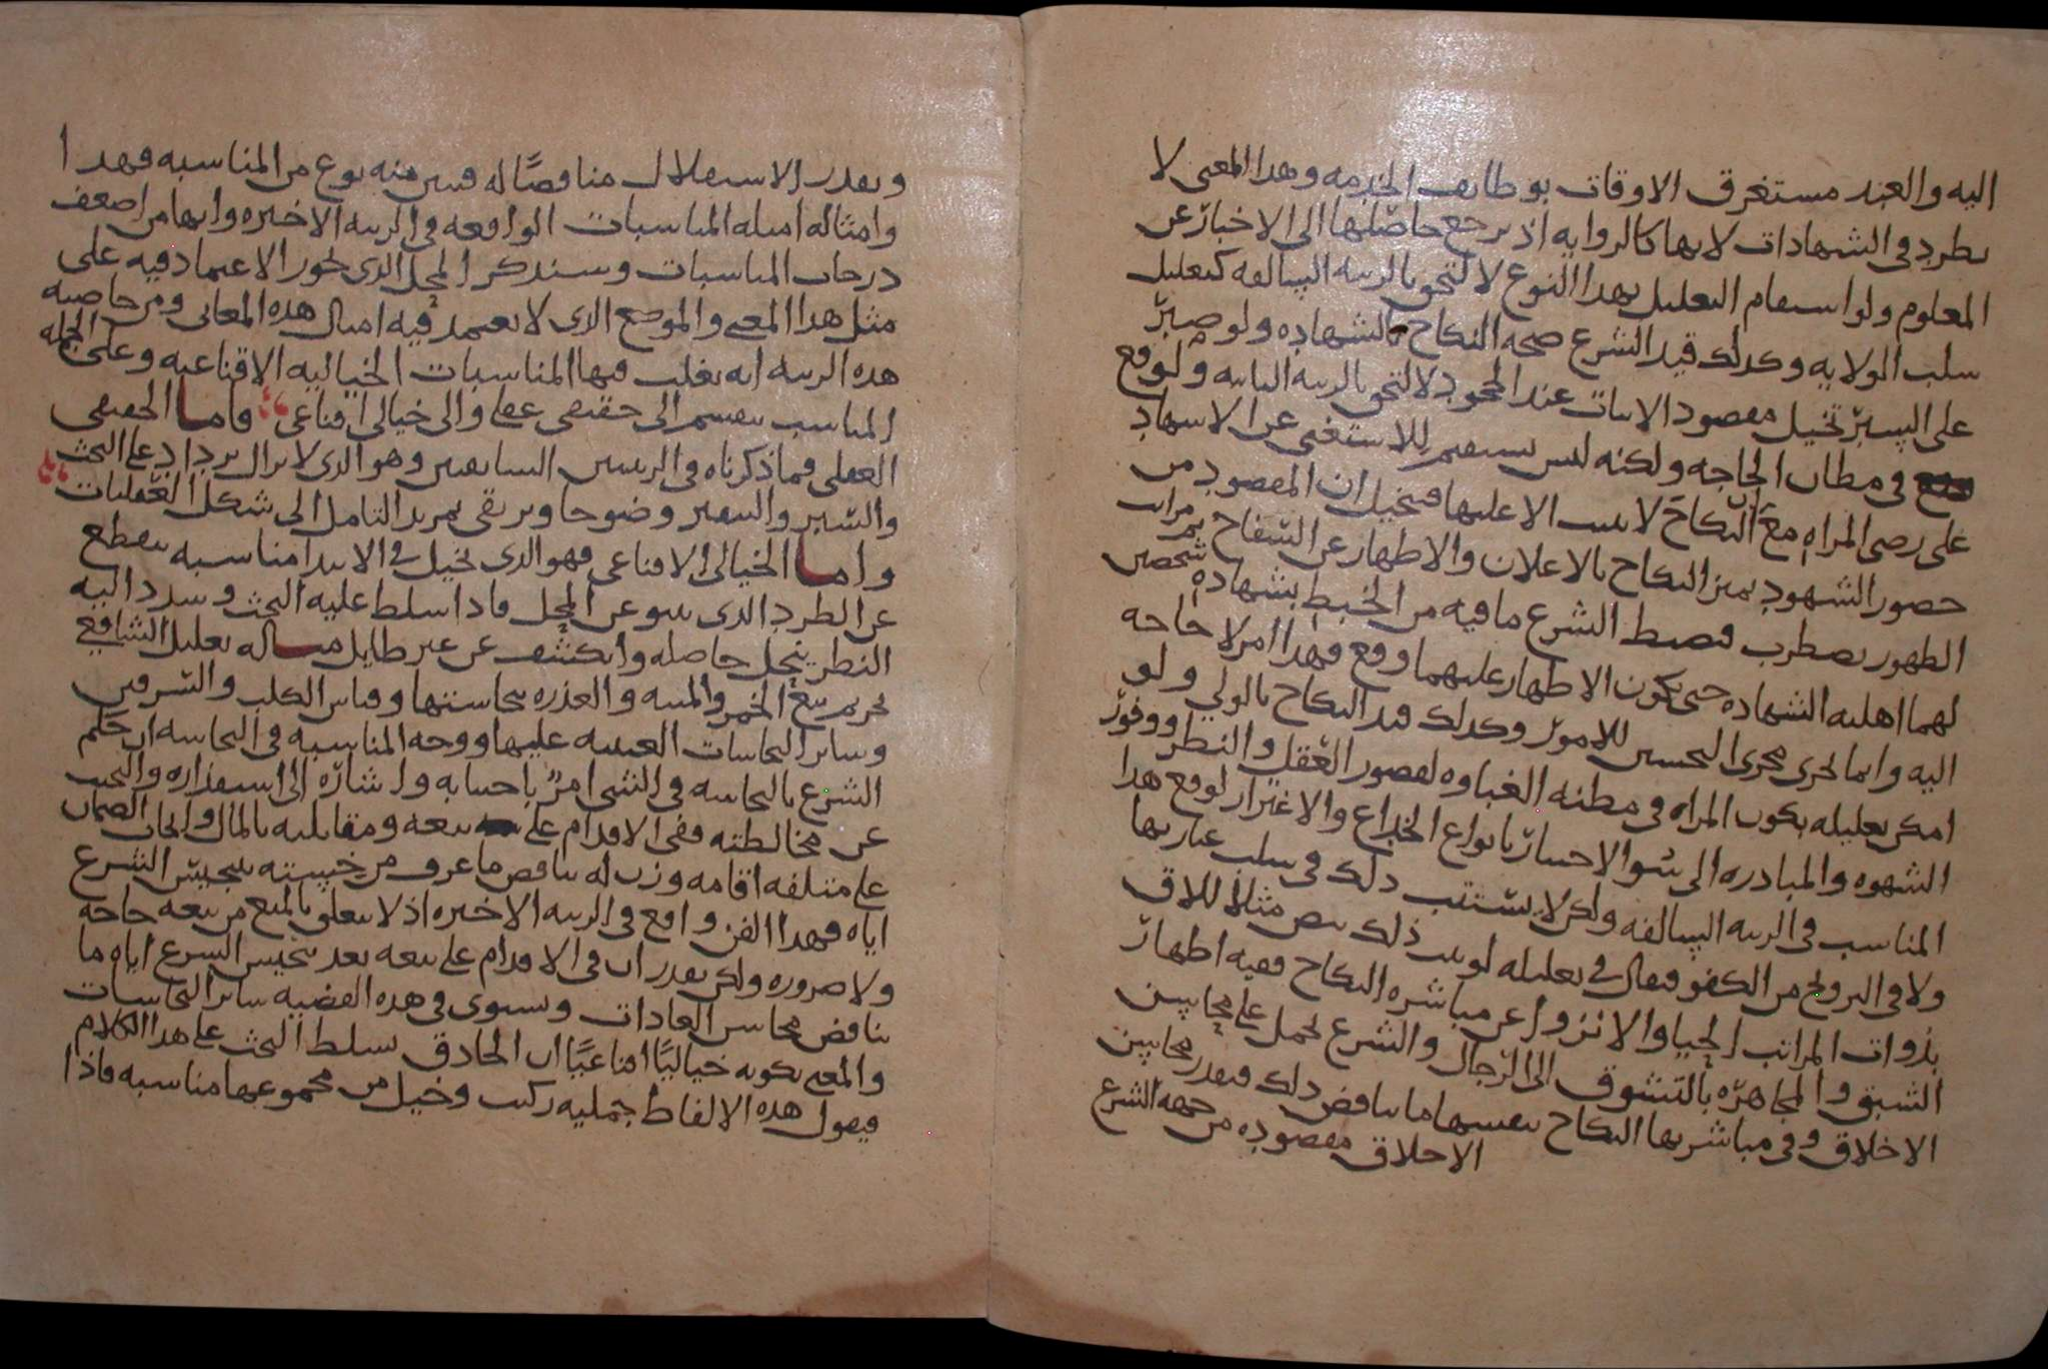 اليه والعبد مستغرق الاوقات بوظايف الخدمه وهذا المعنى لا
يطرد في الشهادات لانها كالروايه اذ يرجع حاصلها الى الاخبار عن
المعلوم ولو استقام التعليل بهذا النوع لالتحق بالرتبه السالفه كتعليل
سلب الولايه وكذلك قيد الشرع صحه النكاح بالشهاده ولو صير
على السير تخيل مقصود الاثبات عند الجحود لالتحق بالرتبه الثانيه ولوقع
في مظان الحاجه ولكنه ليس يستقيم للاستغنى عن الاشهاد
على رضى المراه مع ان النكاح لا يثبت الا عليها فنخيل ان المقصود من
حضور الشهود تميز النكاح بالاعلان والاظهار عن السفاح ثم مراتب
الظهور تضطرب فضبط الشرع ما فيه من الخبط بشهاده شخصين
لهما اهليه الشهاده حتى يكون الاظهار عليهما وقع فهذا امر لا حاجه
اليه وانما يجرى مجرى التحسين للامور وكذلك قيد النكاح بالولي ولو
امكن تعليله بكون المراه في مظنه الغباوه لقصور العقل والنظر ووفور
الشهوه والمبادره الى سُو الاختيار بانواع الخداع والاغترار لوقع هذا
المناسب في الرتبه السالفه ولكن لا يستتب ذلك في سلب عبارتها
ولا في التزويج من الكفو فيقال في تعليله لو ذلك مثلا اللاق
بذوات المراتب الحيا والانزوا عن مباشره النكاح ففيه اظهار
الشبق والمجاهره بالتشوق الى الرجال والشرع يحمل على محاسن
الاخلاق وفي مباشرتها النكاح بنفسها ما يناقض ذلك فتقدر محاسن
الاخلاق مقصوده من جهه الشرع
ويقدر الاستقلال مناقضًا له فبين منه نوع من المناسبه فهذا
وامثاله امثله المناسبات الواقعه في الرتبه الاخيره وانها من اضعف
درجات المناسبات وسنذكر المحل الذى يجوز الاعتماد فيه على
مثل هذا المعنى والموضع الذى لا يعتمد فيه امثال هذه المعانى ومن خاصيه
هذه الرتبه انه يغلب فيها المناسبات الخياليه الاقناعيه وعلى الجمله
المناسب ينقسم الى حقيقى عقلى والى خيالى اقناعى فاما الحقيقى
العقلى فما ذكرناه في الرتبتين السابقتين وهو الذى لا يزال يزداد على البحث
والسبر والتنقير وضوحا ويرتقى بمزيد التامل الى شكل العقليات
واما الخيالى الاقناعى فهو الذى يخيل في الابتدا مناسبه ينقطع
عن الطرد الذى ينبو عن المخيل فاذا سلط عليه البحث وسدد اليه
النظر ينحل حاصله وانكشف عن غير طايل مساله تعليل الشافعي
تحريم بيع الخمر والميته والعذره بنجاستها وقياس الكلب والسرقين
وساير النجاسات العينيه عليها ووجه المناسبه في النجاسه ان حكم
الشرع بالنجاسه في الشى امر باجتنابه واشاره الى استقذاره والتجنب
عن مخالطته ففى الاقدام على بيعه ومقابلته بالمال وايجاب الضمان
على متلفه اقامه وزن له يناقض ما عرف من خسته بتنجيس الشرع
اياه فهذا الفن واقع في الرتبه الاخيره اذ لا يتعلق بالمنع من بيعه حاجه
ولا ضروره ولكن يقدر ان في الاقدام على بيعه بعد تنجيس الشرع اياه ما
يناقض محاسن العادات ويستوى في هذه القضيه ساير النجاسات
والمعنى بكونه خياليًا اقناعيًا ان الحاذق يسلط البحث على هذا الكلام
فيقول هذه الالفاظ جمليه ركبت وخيل من مجموعها مناسبه فاذا